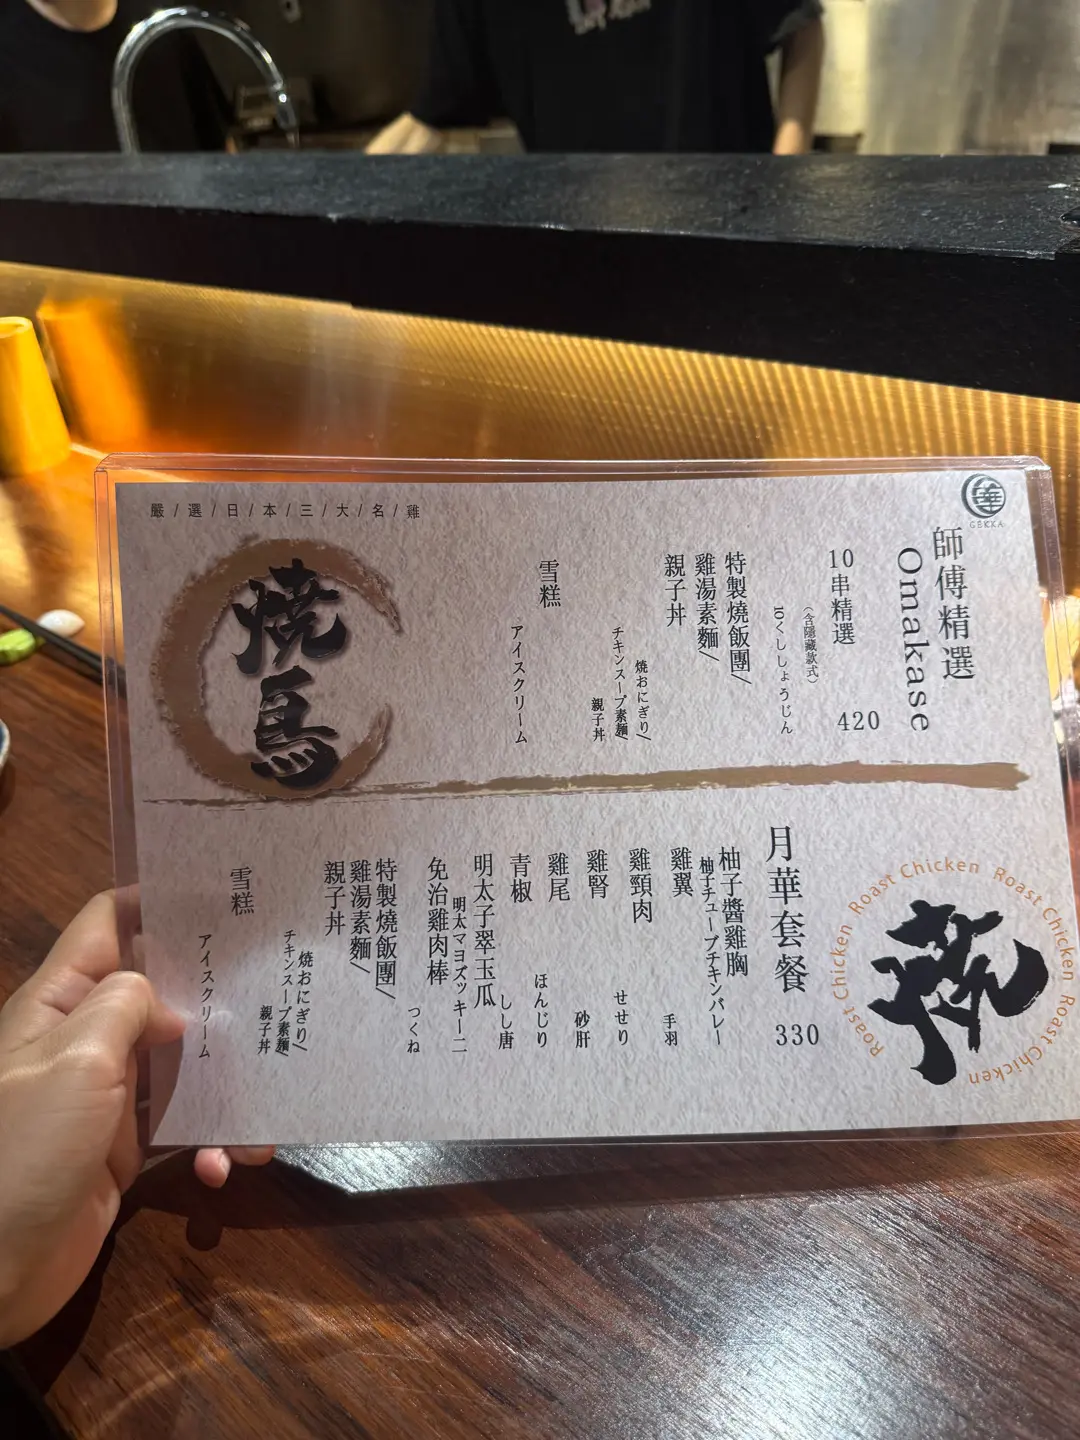 嚴/選/日/本/三/大/名/雞
燒鳥
華
GEKKA
師傅精選
Omakase
10串精選
420
(含隱藏款式)
10くししょうじん
特製燒飯團/
雞湯素麵/
親子丼
焼おにぎり/
チキンスープ素麺/
親子丼
雪糕
アイスクリーム
Roast Chicken Roast Chicken Roast Chicken Roast Chicken
月華套餐
330
柚子醬雞胸
柚子チューブチキンバレー
雞翼
手羽
雞頸肉
せせり
雞腎
砂肝
雞尾
ほんじり
青椒
しし唐
明太子翠玉瓜
明太マヨズッキーニ
免治雞肉棒
つくね
特製燒飯團/
雞湯素麵/
親子丼
焼おにぎり/
チキンスープ素麺/
親子丼
雪糕
アイスクリーム